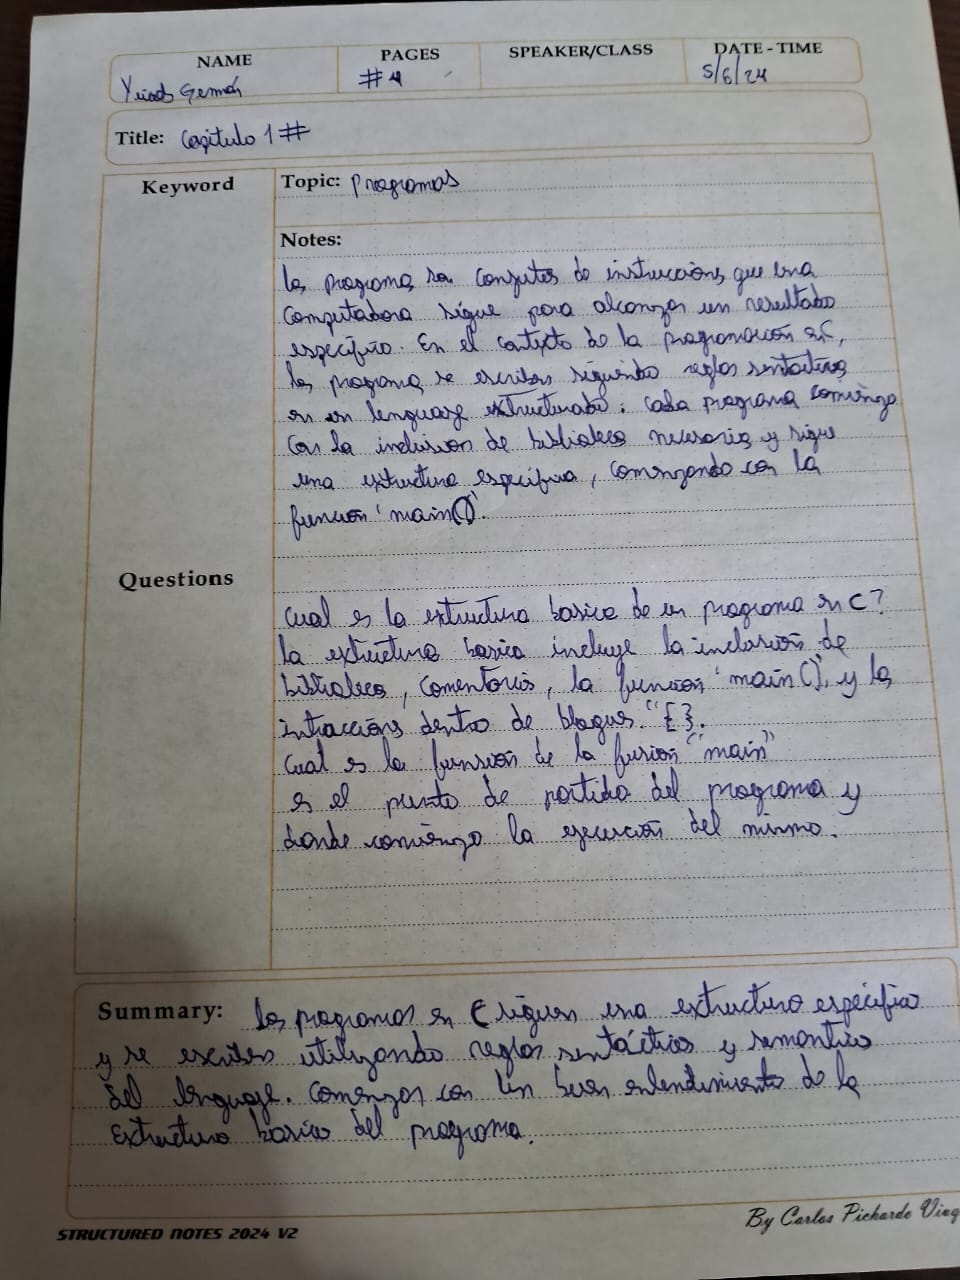 NAME PAGES SPEAKER/CLASS DATE - TIME
Germán #4 5/6/24
Title: Capitulo 1 #
Keyword Topic: Programas
Notes:
los programas son conjuntos de instrucciones que una
Computadora sigue para alcanzar un resultado
específico. En el contexto de la programación en C,
los programas se escriben siguiendo reglas sentacticas
en un lenguaje extructurado: cada programa comienza
con la inclusion de bibliotecas necesarias y sigue
una extructura especifica, comenzando con la
función 'main()'.
Questions
Cual es la extructura basica de un programa en C?
la extructura basica incluye la inclusión de
bibliotecas, comentarios, la función 'main()', y las
dentro de bloques "{ }.
Cual es la función de la "main"
es el punto de partida del programa y
donde comienza la ejecución del mismo.
Summary: los programas en C siguen una extructura especifica
y se escriben utilizando reglas sentácticas y semanticas
del lenguaje. Comenzar con un buen entendimiento de la
extructura basica del programa.
STRUCTURED NOTES 2024 V2
By Carlos Pichardo